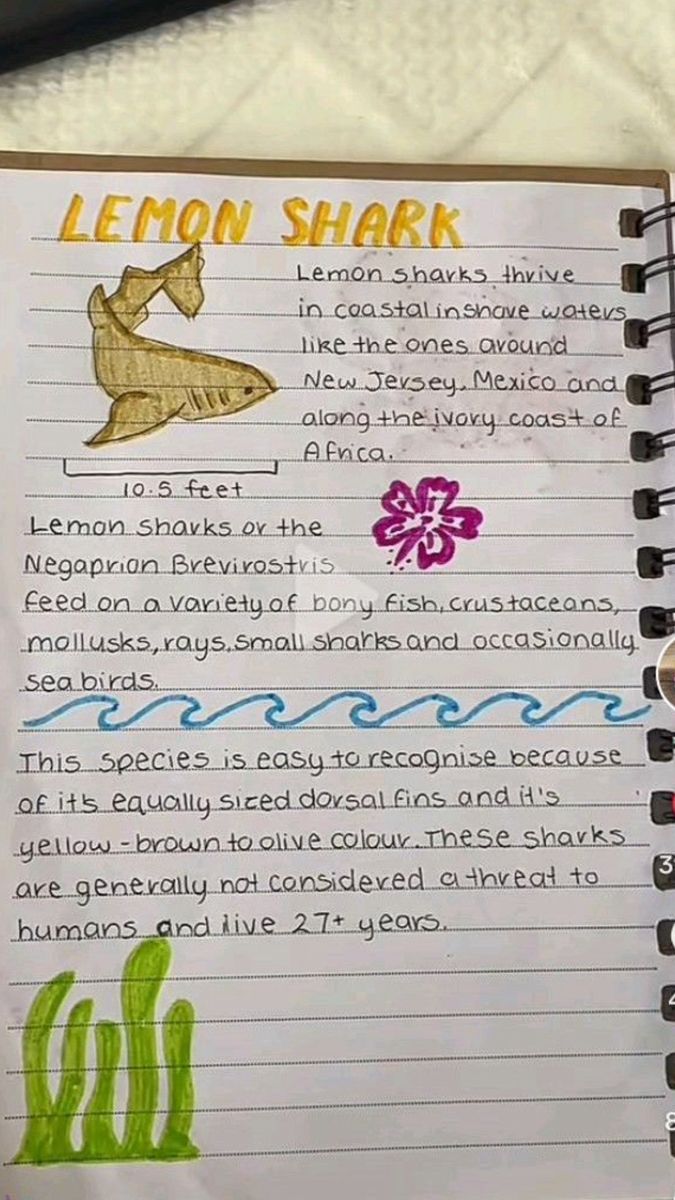 LEMON SHARK
Lemon sharks thrive
in coastal inshore waters
like the ones around
New Jersey, Mexico and
along the ivory coast of
Africa.
10.5 feet
Lemon sharks or the
Negaprion Brevirostris
feed on a variety of bony fish, crustaceans,
mollusks, rays, small sharks and occasionally
sea birds.
This species is easy to recognise because
of it's equally sized dorsal fins and it's
yellow-brown to olive colour. These sharks
are generally not considered a threat to
humans and live 27+ years.